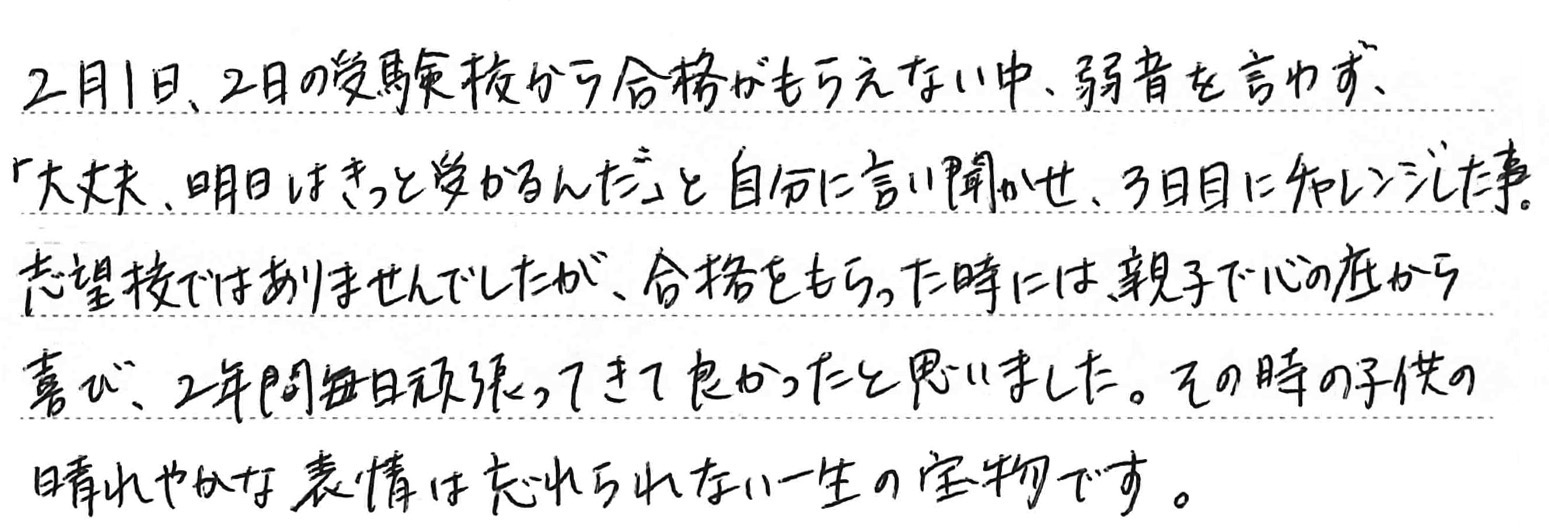 2月1日、2日の受験校から合格がもらえない中、弱音を言わず、
「大丈夫、明日はきっと受かるんだ」と自分に言い聞かせ、3日目にチャレンジした事。
志望校ではありませんでしたが、合格をもらった時には、親子で心の底から
喜び、2年間毎日頑張ってきて良かったと思いました。その時の子供の
晴れやかな表情は忘れられない一生の宝物です。